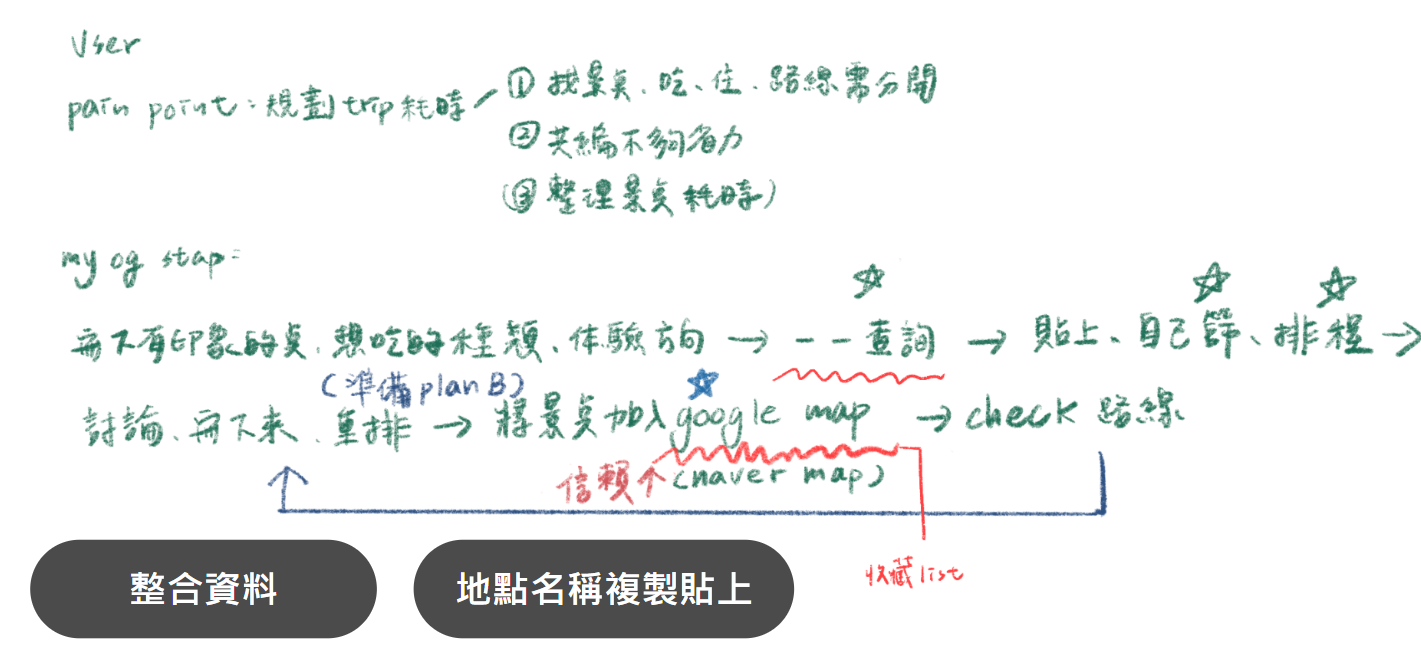 User
pain point：規劃trip耗時 ① 找景點、吃、住、路線需分開
② 共編不夠省力
(③ 整理景點耗時)
my og stap：
寫下有印象的點、想吃的種類、体驗方向 → 一一查詢 → 貼上、自己篩、排程 →
(準備plan B)
討論、寫下來、重排 → 將景點加入google map → check 路線
信賴个 (naver map)
收藏list
整合資料 地點名稱複製貼上